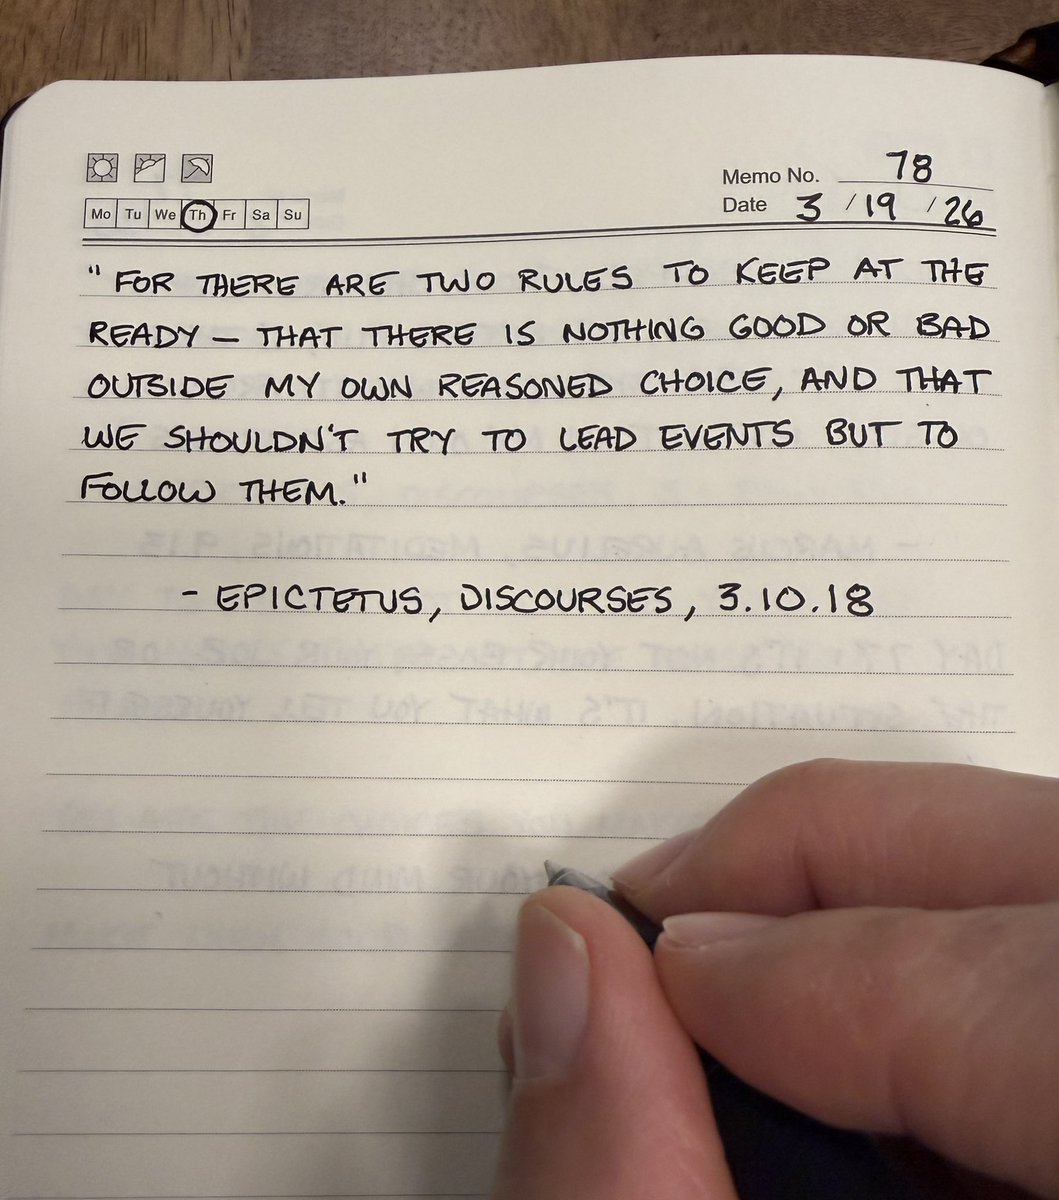 Memo No. 78
Mo Tu We Th Fr Sa Su
Date 3 / 19 / 26
"FOR THERE ARE TWO RULES TO KEEP AT THE
READY — THAT THERE IS NOTHING GOOD OR BAD
OUTSIDE MY OWN REASONED CHOICE, AND THAT
WE SHOULDN'T TRY TO LEAD EVENTS BUT TO
FOLLOW THEM."
- EPICTETUS, DISCOURSES, 3.10.18